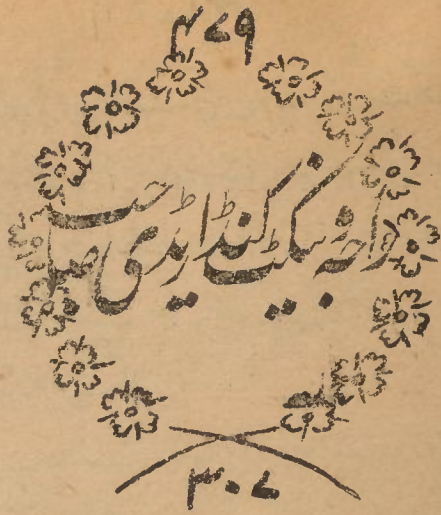 ۳۷۹
راجہ ونیکٹ کنڈا ریڈی صاحب
۳۰۷